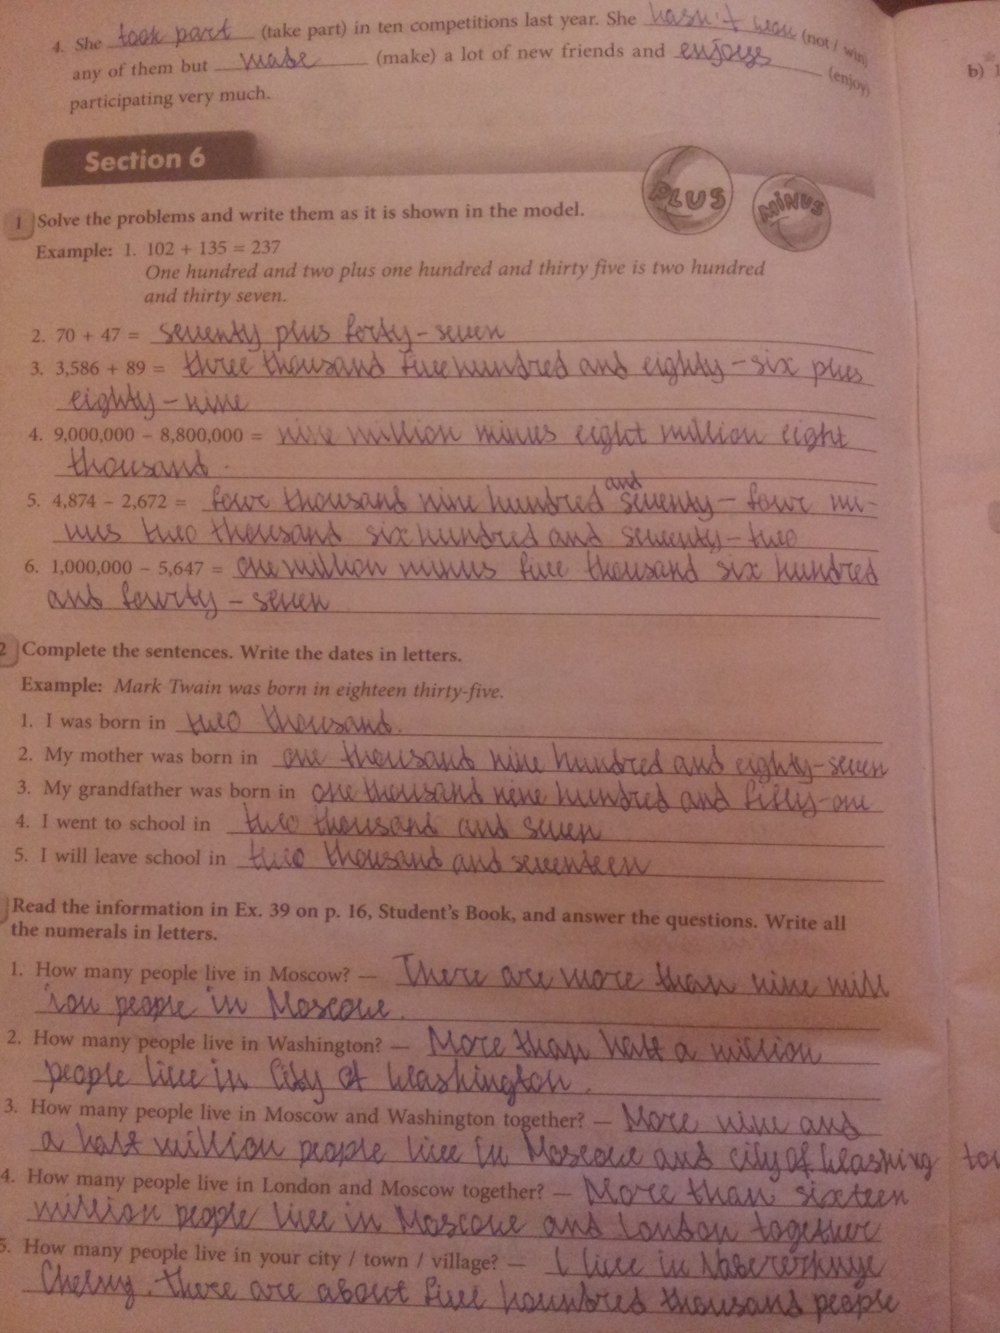 4. She took part (take part) in ten competitions last year. She hasn't won (not / win)
any of them but made (make) a lot of new friends and enjoys (enjoy)
participating very much.
b) 1
Section 6
PLUS MINUS
1 Solve the problems and write them as it is shown in the model.
Example: 1. 102 + 135 = 237
One hundred and two plus one hundred and thirty five is two hundred
and thirty seven.
2. 70 + 47 = seventy plus forty-seven
3. 3,586 + 89 = three thousand five hundred and eighty-six plus
eighty-nine
4. 9,000,000 – 8,800,000 = nine million minus eight million eight
thousand.
5. 4,874 – 2,672 = four thousand nine hundred and seventy-four mi-
nus two thousand six hundred and seventy-two
6. 1,000,000 – 5,647 = one million minus five thousand six hundred
and fourty-seven
2 Complete the sentences. Write the dates in letters.
Example: Mark Twain was born in eighteen thirty-five.
1. I was born in two thousand.
2. My mother was born in one thousand nine hundred and eighty-seven
3. My grandfather was born in one thousand nine hundred and fifty-one
4. I went to school in two thousand and seven
5. I will leave school in two thousand and seventeen
Read the information in Ex. 39 on p. 16, Student's Book, and answer the questions. Write all
the numerals in letters.
1. How many people live in Moscow? — There are more than nine mill
ion people in Moscow.
2. How many people live in Washington? — More than half a million
people live in City of Washington.
3. How many people live in Moscow and Washington together? — More nine and
a half million people live in Moscow and city of Washing ton
4. How many people live in London and Moscow together? — More than sixteen
million people live in Moscow and London together
5. How many people live in your city / town / village? — I live in
Chelny. there are about five hundred thousand people